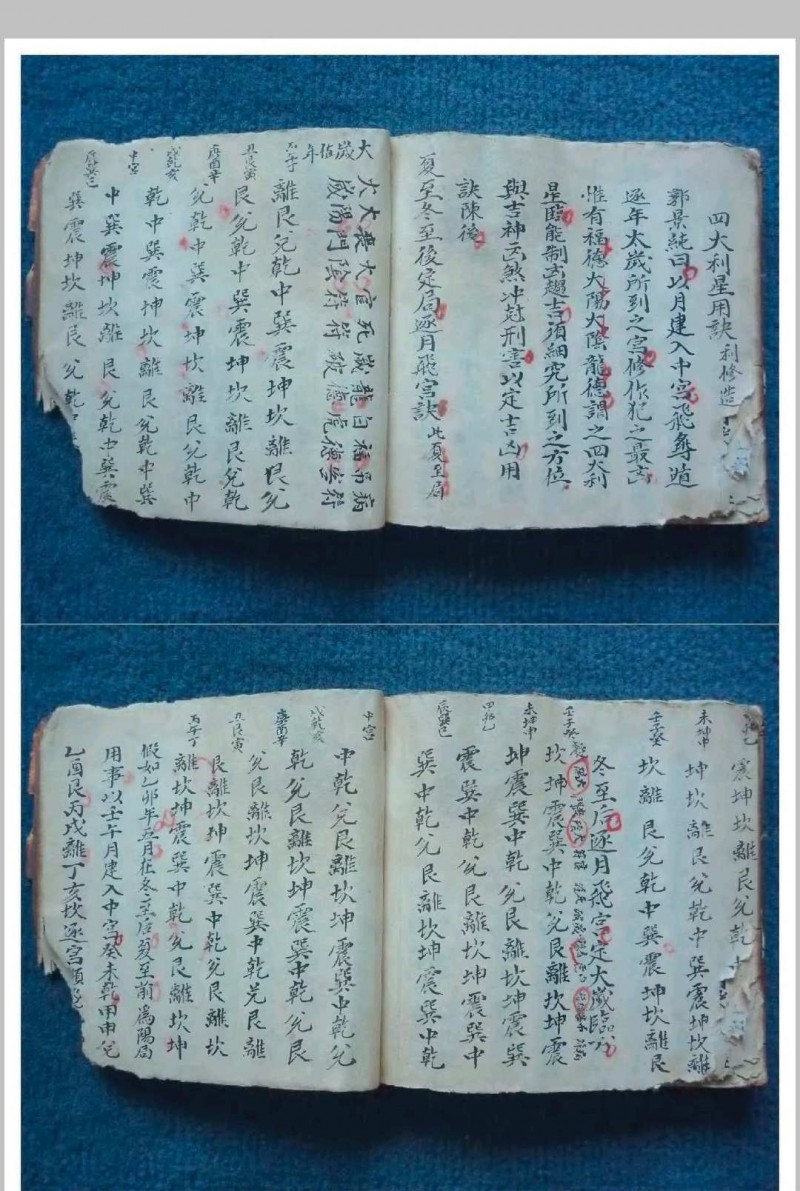 四大利星用訣 利修造
郭景純曰以月建入中宮飛尋道
逐年太歲所到之宮修作犯之最凶
惟有福德太陽太陰龍德謂之四大利
星臨能制凶趨吉須細究所到之方位
與吉神凶煞冲尅刑害以定吉凶用
訣陳後
夏至冬至後定局逐月飛宮訣 此夏至局
大歲佔年
大大喪大官死歲龍白福吊病
歲陽門陰符符破德虎德客符
丙午丁 離艮兌乾中巽震坤坎離艮兌
丑艮寅 艮兌乾中巽震坤坎離艮兌乾
庚酉辛 兌乾中巽震坤坎離艮兌乾中
戌乾亥 乾中巽震坤坎離艮兌乾中巽
中宮 中巽震坤坎離艮兌乾中巽震
辰巽巳 巽震坤坎離艮兌乾中
震坤坎離艮兌乾中
未坤申 坤坎離艮兌乾中巽震坤坎離
壬子癸 坎離艮兌乾中巽震坤坎離艮
冬至后逐月飛宮定大歲臨方
壬子癸 坎坤震巽中乾兌艮離坎坤震
未坤申 坤震巽中乾兌艮離坎坤震巽
甲卯乙 震巽中乾兌艮離坎坤震巽中
辰巽巳 巽中乾兌艮離坎坤震巽中乾
中宮 中乾兌艮離坎坤震巽中乾兌
戌乾亥 乾兌艮離坎坤震巽中乾兌艮
庚酉辛 兌艮離坎坤震巽中乾兌艮離
丑艮寅 艮離坎坤震巽中乾兌艮離坎
丙午丁 離坎坤震巽中乾兌艮離坎坤
假如乙卯年五月在冬至后夏至前為陽局
用事以壬午月建入中宮癸未乾甲申兌
乙酉艮丙戌離丁亥坎逐宮順